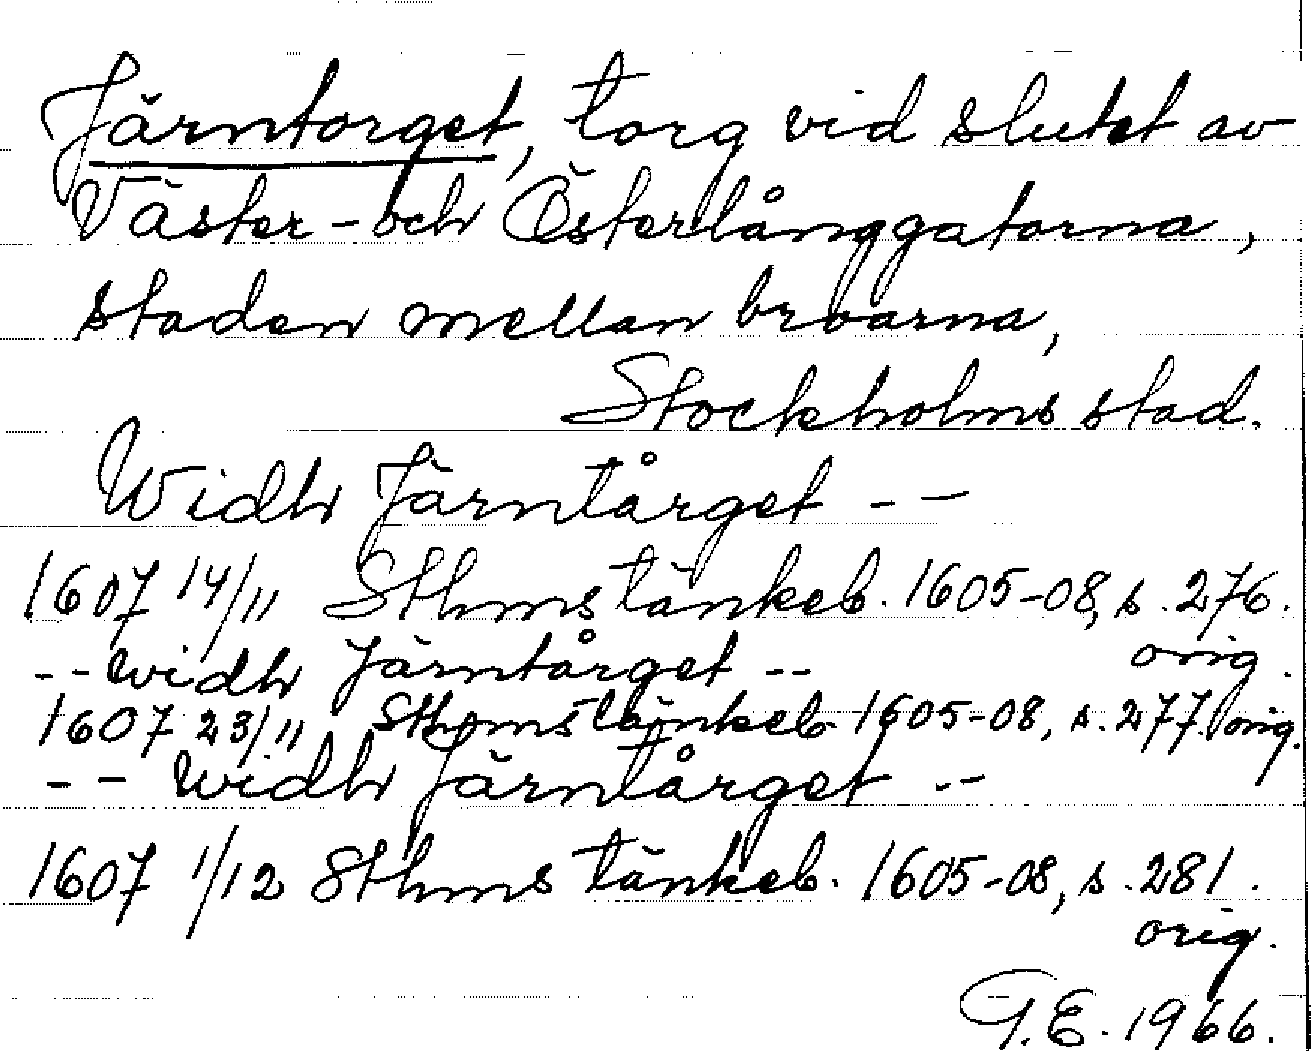 Järntorget, torg vid slutet av
Väster- och Österlånggatorna,
staden mellan broarna,
Stockholms stad.
Widh Järntårget - -
1607 14/11 Sthms tänkeb. 1605-08, s. 276.
orig.
- - widh Järntårget - -
1607 23/11 Sthms tänkeb. 1605-08, s. 277. orig.
- - widh Järntårget - -
1607 1/12 Sthms tänkeb. 1605-08, s. 281.
orig.
G.E. 1966.